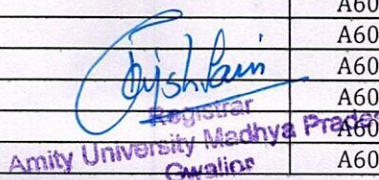 A60
A60
A60
A60
A60
Registrar
A60
Amity University Madhya Prades
A60
Gwalior